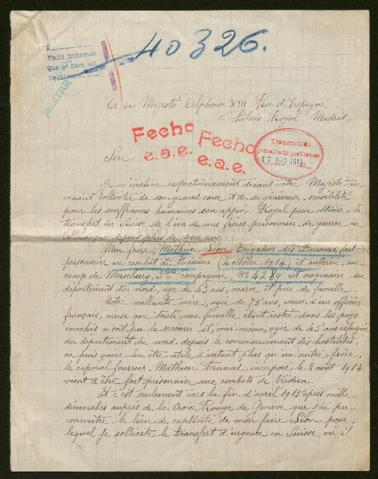 40326.
A Sa Majesté Alphonse XIII Roi d'Espagne
Palais Royal Madrid
Fecho
e.a.e.
Fecho
e.a.e.
Sire
Je m'incline respectueusement devant votre Majesté en
venant solliciter de son grand cœur et de sa généreuse sensibilité
pour les souffrances humaines son appui Royal pour obtenir le
transport en Suisse de l'un de mes frères prisonnier de guerre en
Allemagne depuis plus de deux ans.
Mon frère Mathieu Léon Brigadier des Douanes fait
prisonnier au combat de (4 octobre 1914) et interné au
camp de Merseburg, compagnie, Nº 4289 est originaire du
département du nord, agé de 43 ans, marié et père de famille.
Notre vaillante mère, agée de 75 ans, veuve d'un officier
français, ainsi que toute ma famille étant restée dans les pays
envahis n'ont pu le secourir et moi-même, agée de 45 ans réfugiée
du département du nord, depuis le commencement des hostilités
ne puis guère lui être utile d'autant plus qu'un autre frère,
le caporal fourrier Mathieu Fernand, incorporé le 2 août 1914
vient d'être fait prisonnier aux combats de Verdun.
Et c'est seulement vers la fin d'avril 1915 après mille
démarches auprès de la Croix Rouge de Genève que j'ai pu
connaître le lieu de captivité de mon frère Léon pour
lequel je sollicite le transfert d'urgence en Suisse, vu